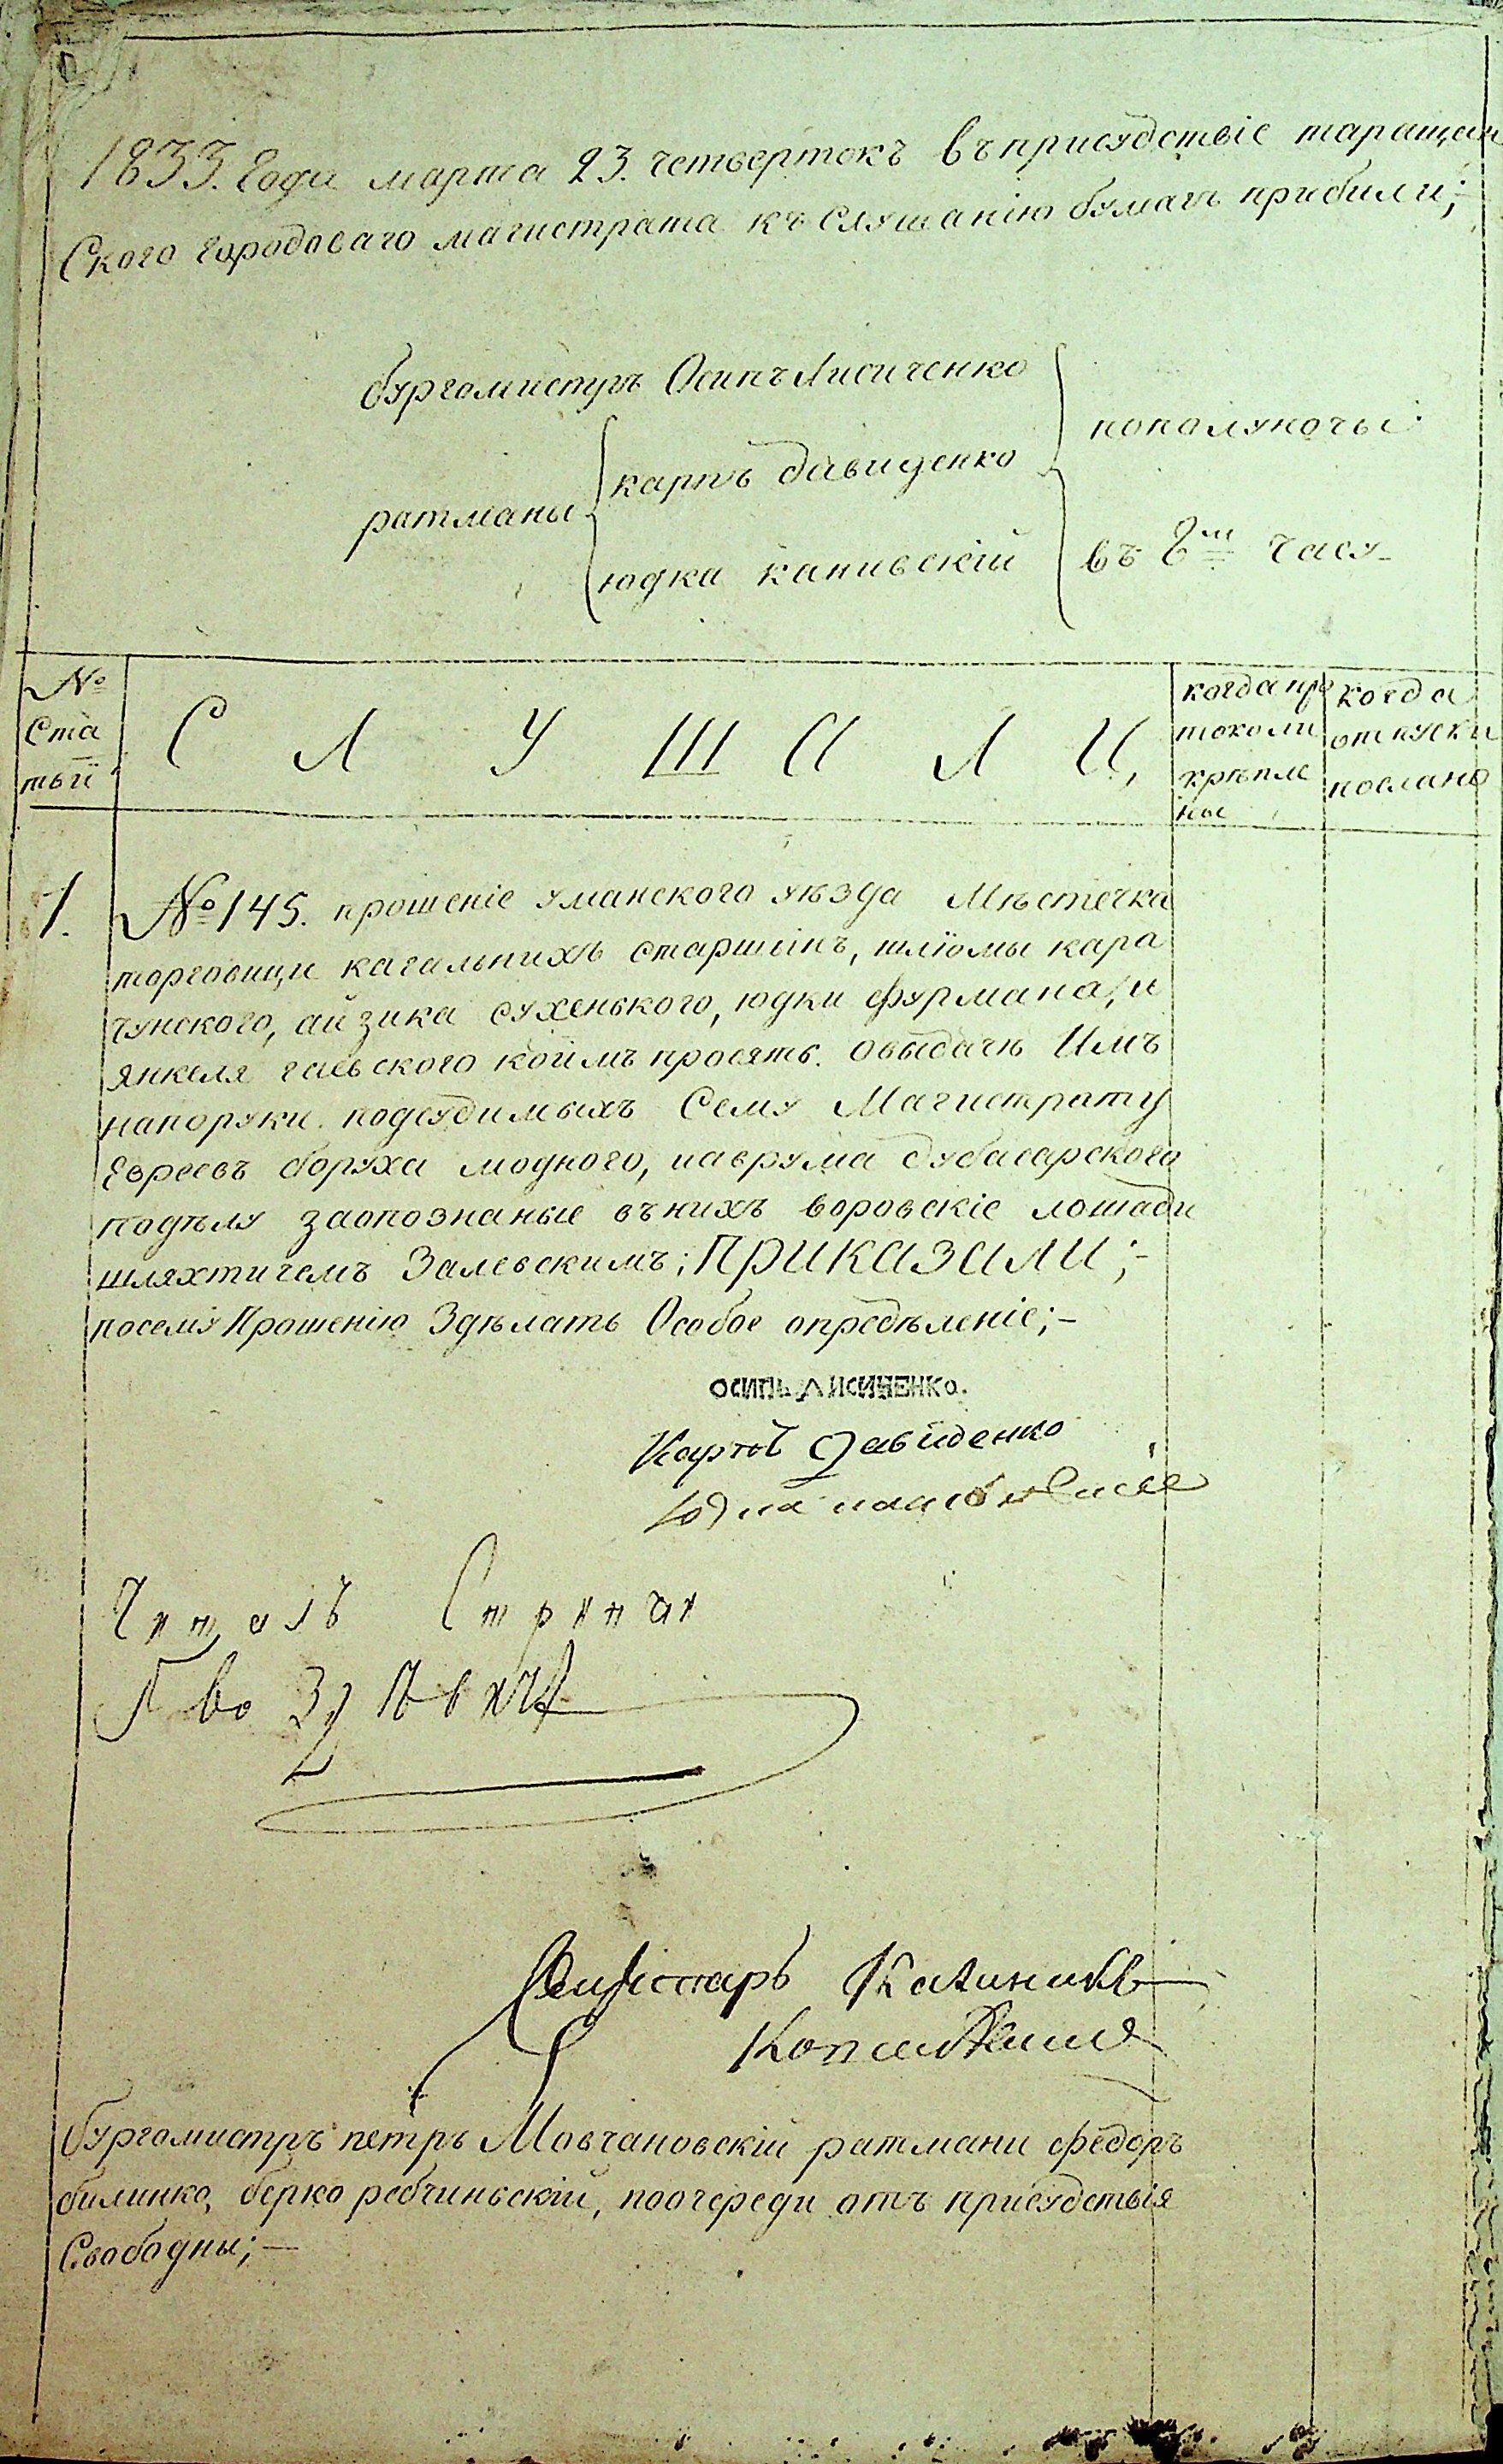 1833. Года марта 23. четвертокъ въ присудствіе таращан
Ского городоваго магистрата къ Слушанію бумагъ прибили;-
бургомистръ Осипъ Лисиченко
ратманы
карпъ давиденко
юдка канивскій
пополуночы
въ 8м часу
№
Ста
тьи
С Л У Ш А Л И,
когда про
токоли
крѣпле
ны
когда
отпуски
послано
1.
№ 145. прошеніе уманского уѣзда Мѣстечка
торговици кагальнихъ старшинъ, шліомы кара
чунского, айзика сухенького, юдки фурмана, и
янкеля гаевского коимъ просять. овыдачѣ Имъ
напоруки подсудимыхъ Сему Магистрату
Евреевъ боруха модного, иаврума дубасарского
подѣлу заопознаные внихъ воровскіе лошади
шляхтичемъ Залевскимъ; ПРИКАЗАЛИ;-
посему Прошенію Здѣлать Особое опредѣленіе;-
ОСИПЪ ЛИСИЧЕНКО.
Карпъ Давиденко
Читалъ Стряпчи
Секретарь Калиников
бургомистръ петръ Мовчановскій ратмани федоръ
билинко, берко ребчиньскій, поочереди отъ присудствія
Свободны;-